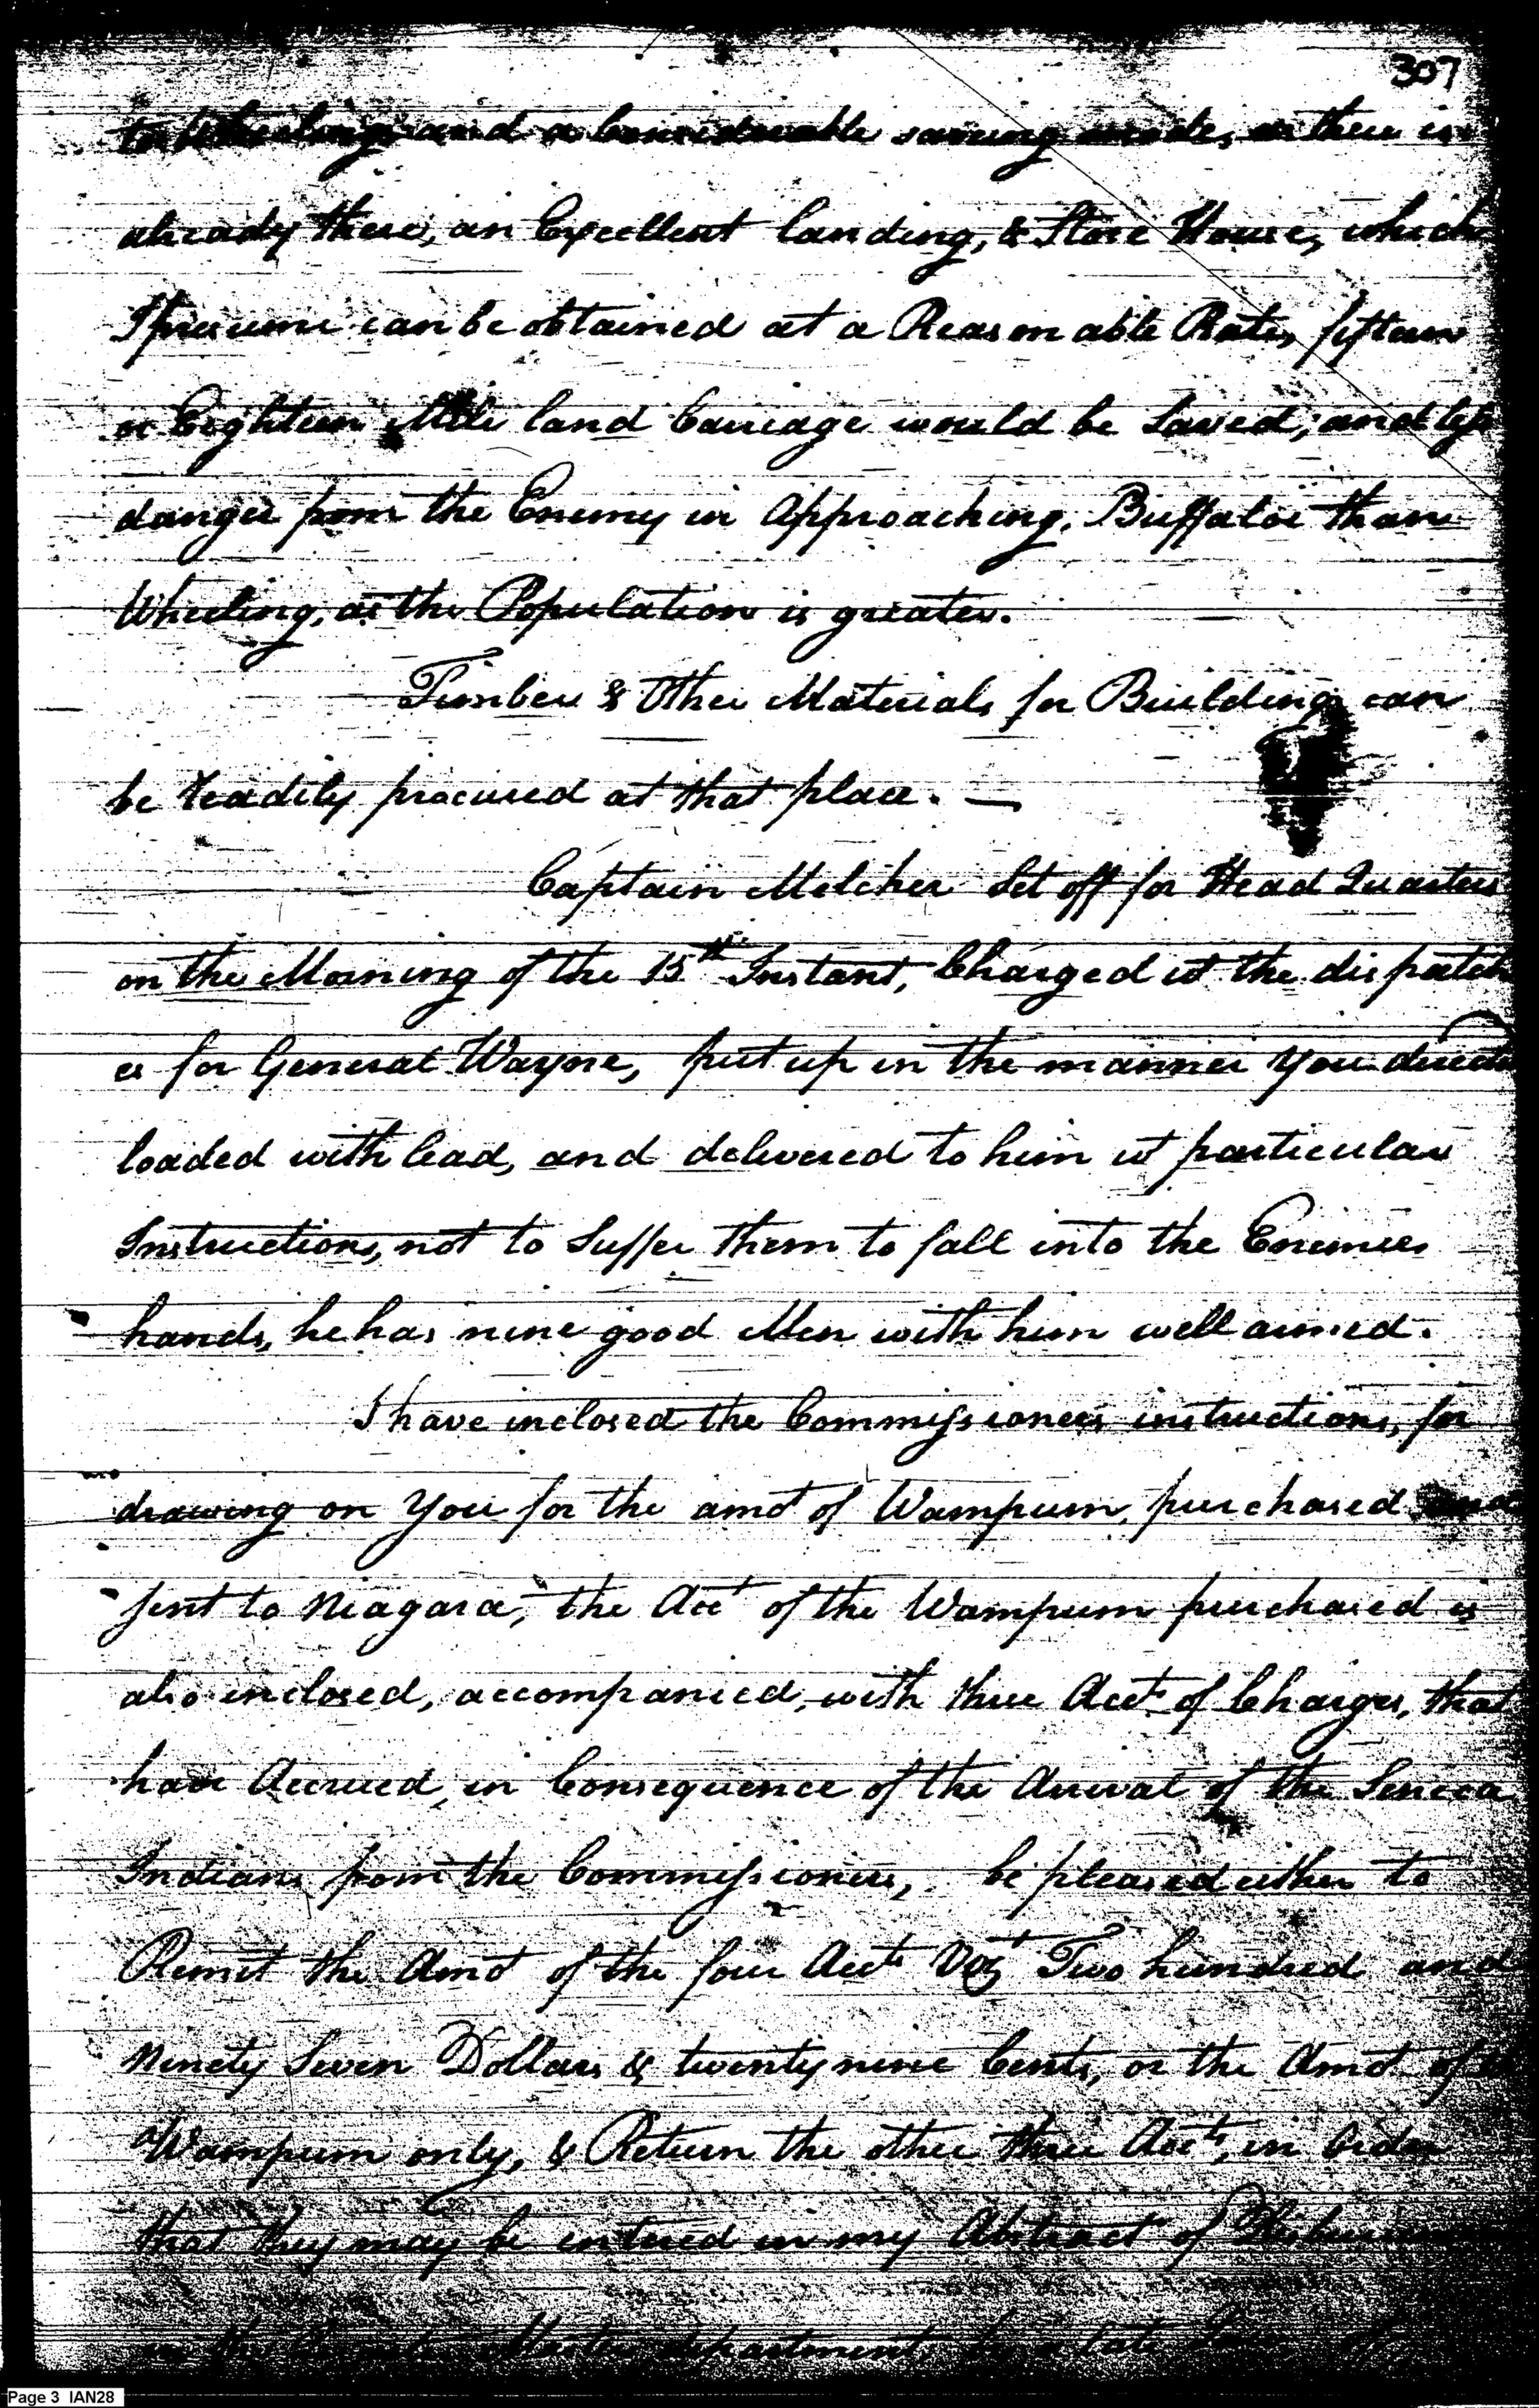 307
to Wheeling, and a Considerable saving made, as there is
already there, an Excellent landing, & Store House, which
I presume can be obtained at a Reasonable Rate, fifteen
or Eighteen Mile land Carriage would be Saved; and less
danger from the Enemy in Approaching, Buffaloe than
Wheeling, as the Population is greater.
Timber & Other Materials for Building can
be readily procured at that place. —
Captain Melcher Set off for Head Quarters
on the Morning of the 15th Instant, Charged wt the dispatch
es for General Wayne, put up in the manner you direct
loaded with lead, and delivered to him wt particular
Instructions, not to Suffer them to fall into the Enemies
hands, he has nine good Men with him well armed.
I have inclosed the Commissioners instructions, for
drawing on You for the amot of Wampum, purchased and
sent to Niagara, the Acct of the Wampum purchased is
also inclosed, accompanied, with three Accts of Charges, that
have Accrued, in Consequence of the Arrival of the Seneca
Indians from the Commissioners, be pleased either to
Remit the Amot of the four Accts Vizt Two hundred and
Ninety Seven Dollars & twenty nine Cents, or the Amot of
Wampum only, & Return the other three Accts, in Order
that they may be entered in my Abstract of
in the Quarter Master department
Page 3 IAN28